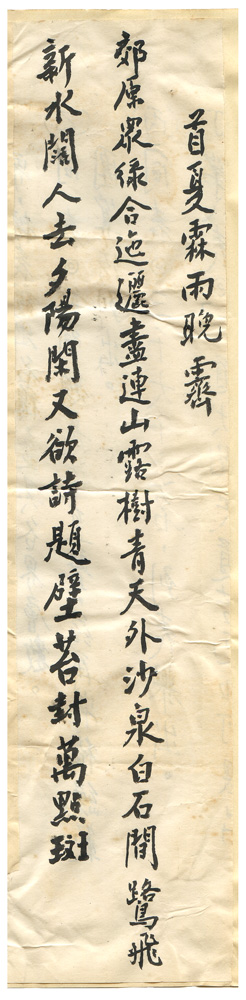 首夏霖雨晚霽
郊原衆綠合迤邐盡連山露樹青天外沙泉白石間鷺飛
新水闊人去夕陽閑又欲詩題壁苔封萬點斑